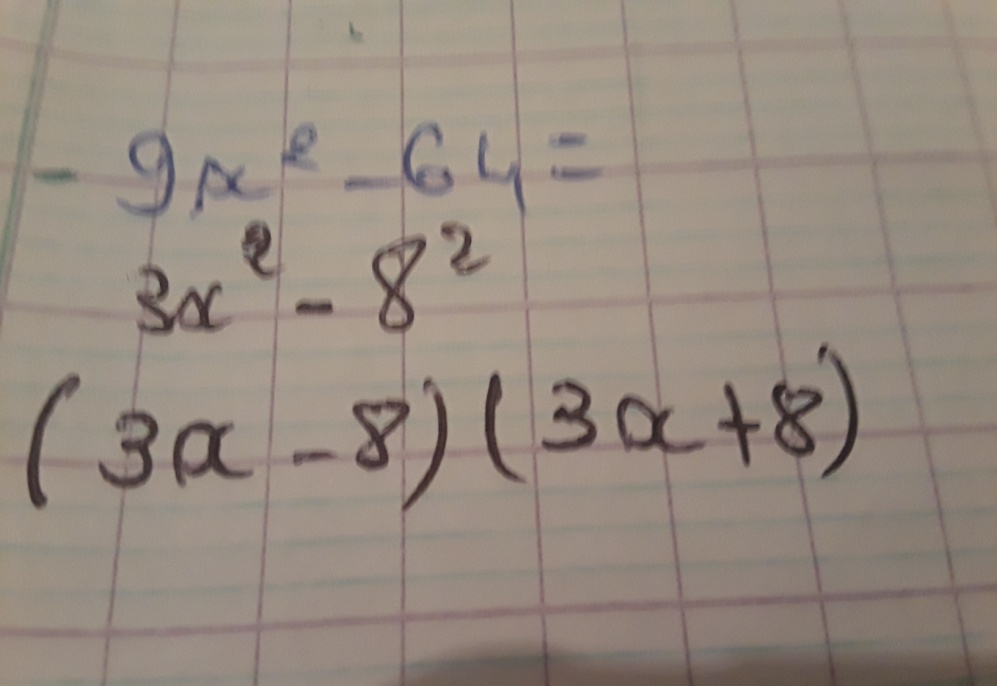 - 9x² - 64 =
3x² - 8²
(3x - 8)(3x + 8)